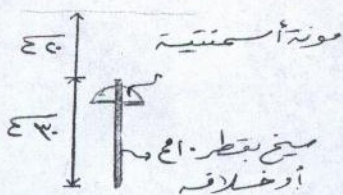 مونة أسمنتية
٢٠
٣٠
سيخ بقطر ١٠ مم
أو خلافه